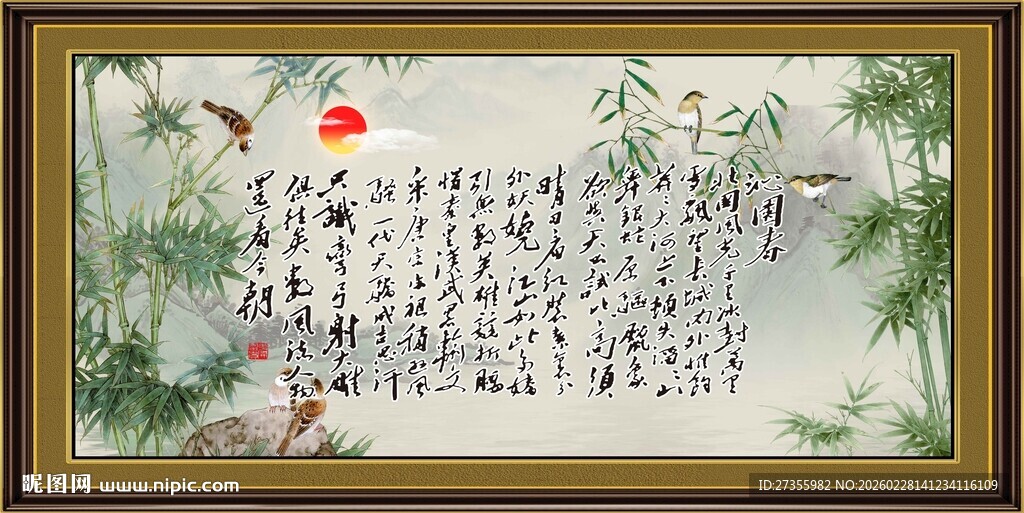 沁園春
北國風光千里冰封萬里
雪飄望長城内外惟餘
莽々大河上下頓失滔々山
舞銀蛇原驰蠟象
欲與天公試比高須
晴日看红裝素裹分
外妖嬈 江山如此多嬌
引無數英雄競折腰
惜秦皇漢武略輸文
采唐宗宋祖稍遜風
騷一代天驕成吉思汗
只識彎弓射大雕
俱往矣數風流人物
還看今朝
昵图网 www.nipic.com
ID:27355982 NO:20260228141234116109